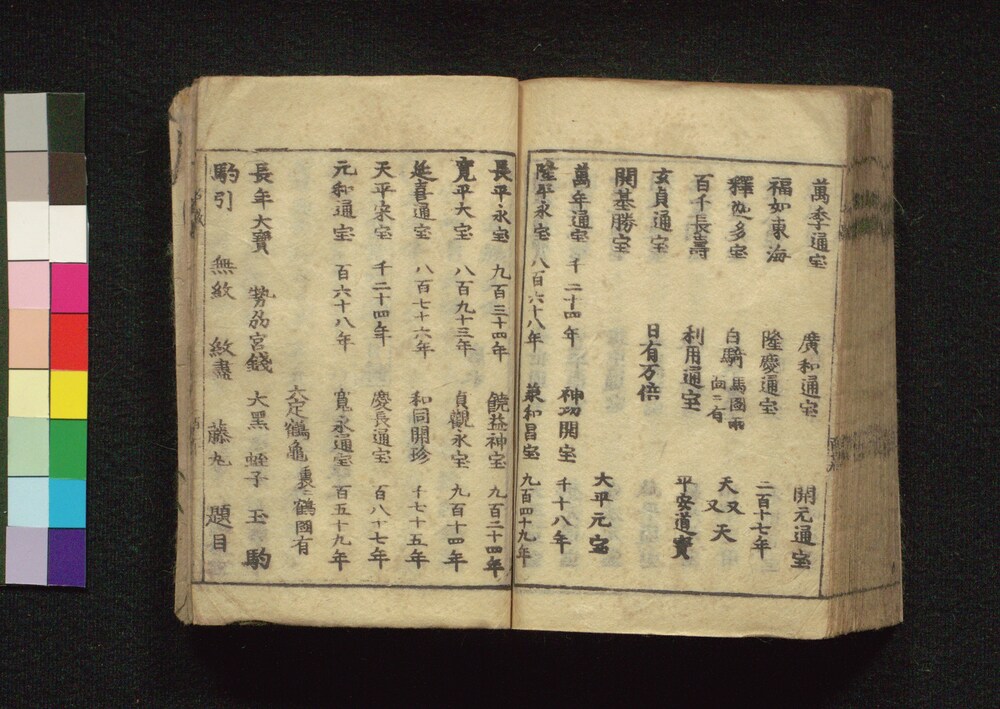 萬季通宝 廣和通宝 開元通宝
福如東海 隆慶通宝 二百十七年
釋迦多宝 白騎 馬圖両面ニ有 天又天又
百千長壽 利用通宝 平安道寳
玄貞通宝 日有万倍
開基勝宝 大平元宝
萬年通宝 千二十四年 神功開宝 千十八年
隆平永宝 八百六十八年 羕和昌宝 九百四十九年
長平永宝 九百三十四年 饒益神宝 九百二十四年
寛平大宝 八百九十三年 貞觀永宝 九百十四年
延喜通宝 八百七十六年 和同開珍 千七十五年
天平宋宝 千二十四年 慶長通宝 百八十七年
元和通宝 百六十八年 寛永通宝 百五十九年
六定鶴亀 裏ニ鶴國有
長年大寳 勢刕宮錢 大黒 蛭子 玉 駒
駒引 無紋 紋盡 藤丸 題目